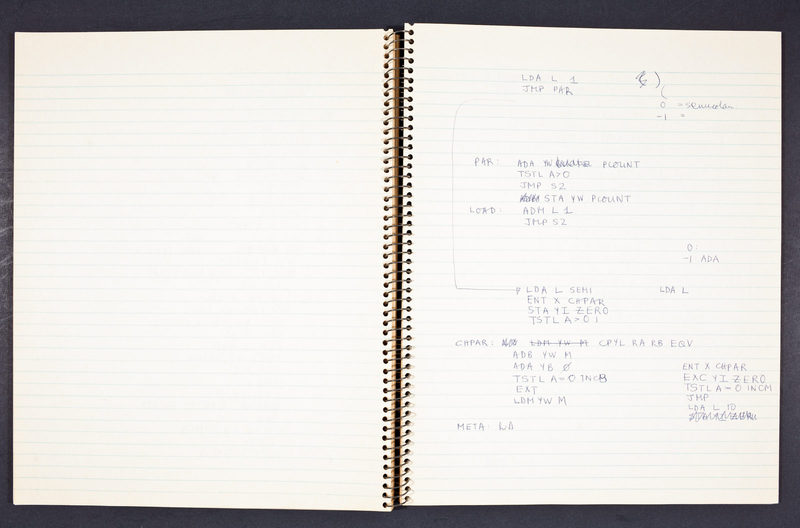 LDA L 1
JMP PAR
)
(
0 = semicolon
-1 =
PAR: ADA YW PCOUNT
TSTL A>0
JMP S2
STA YW PCOUNT
LOAD: ADM L 1
JMP S2
0:
-1 ADA
LDA L SEMI
LDA L
ENT X CHPAR
STA YI ZERO
TSTL A>0 1
CHPAR: LDM YW M CPYL RA RB EQV
ADB YW M
ADA YB Ø
TSTL A=0 INCB
EXT
LDM YW M
ENT X CHPAR
EXC YI ZERO
TSTL A=0 INCM
JMP
LDA L
META: